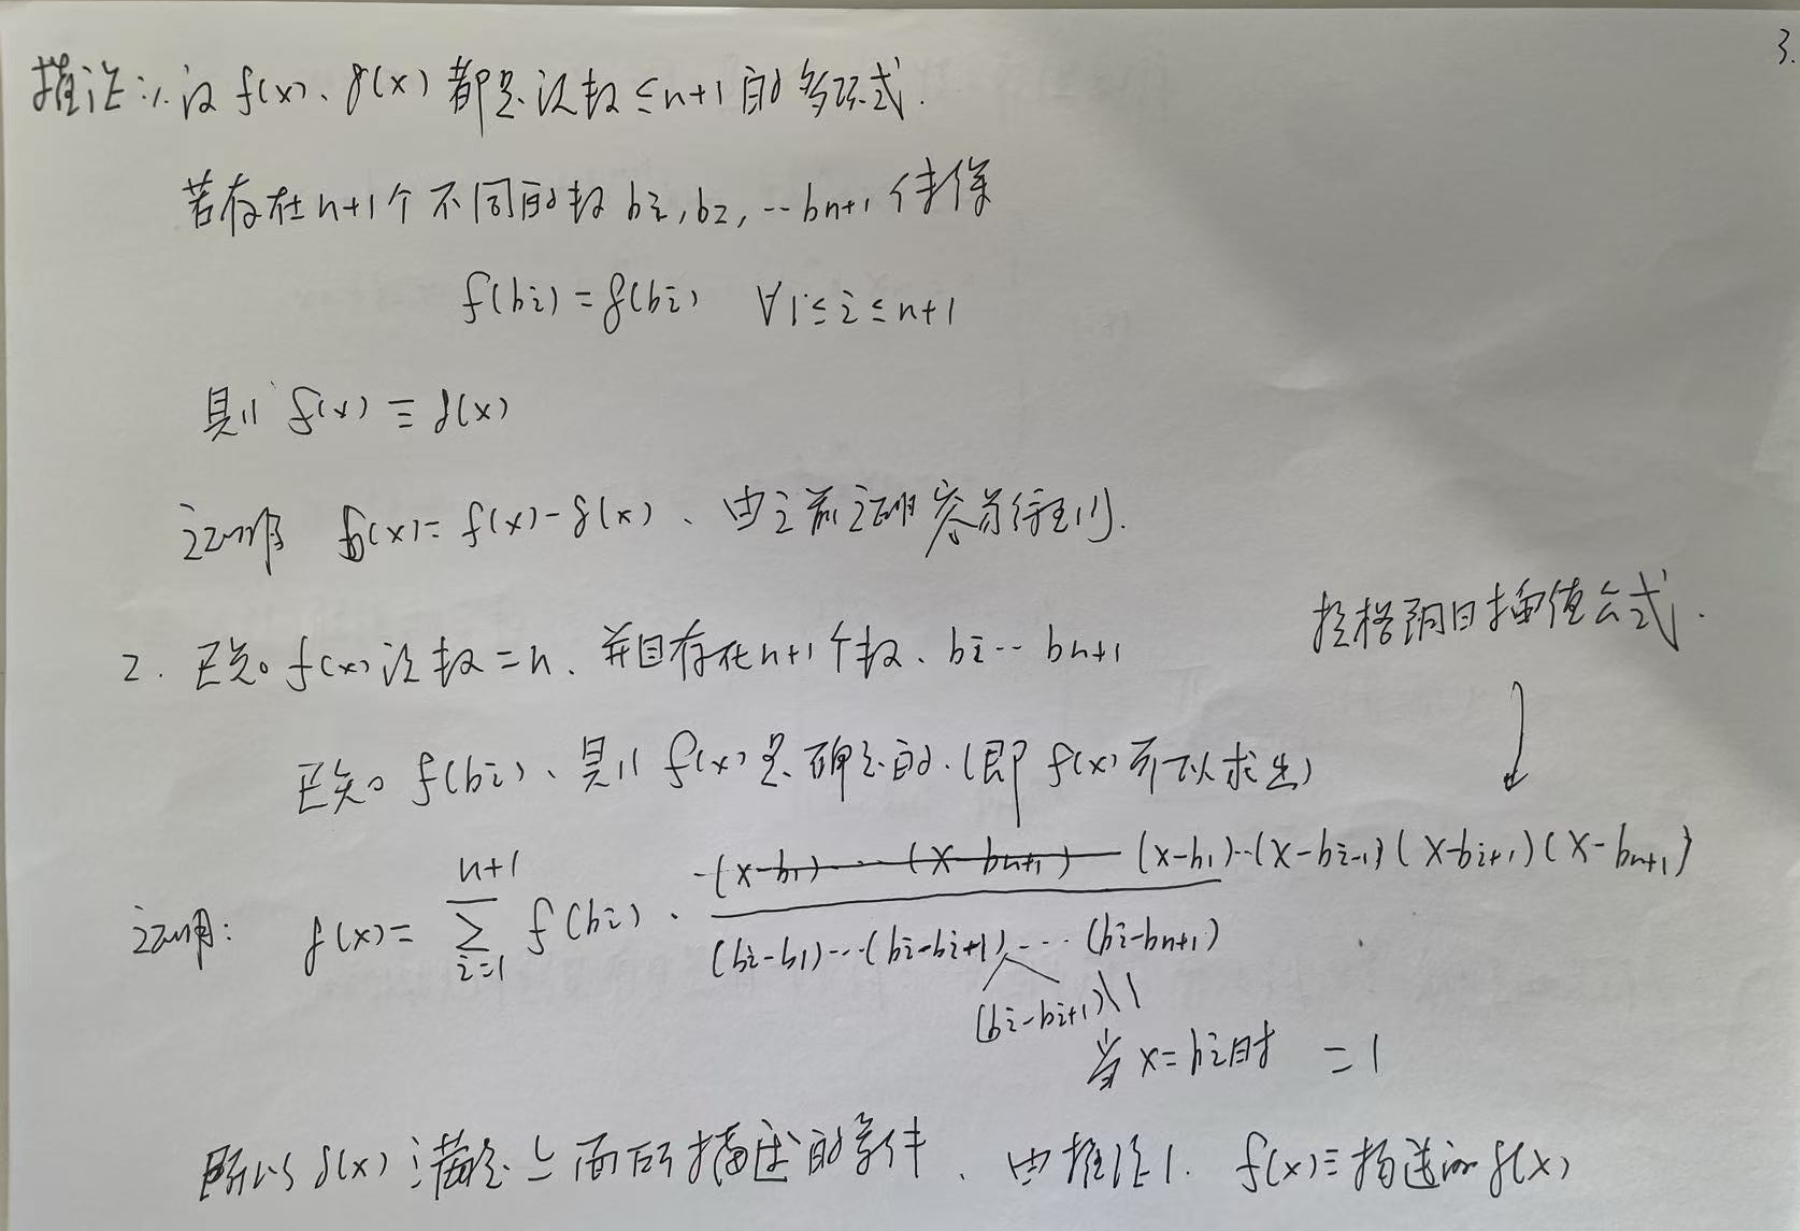 3.
推论1. 设 f(x)、g(x) 都是次数 ≤n+1 的多项式.
若存在 n+1 个不同的数 bi, b2, … bn+1 使得
f(bi) = g(bi) ∀1≤i≤n+1
则 f(x) ≡ g(x)
证明 h(x) = f(x) - g(x)、由之前证明容易得到.
拉格朗日插值公式.
2. 已知 f(x) 次数 = n、并且存在 n+1 个数、bi … bn+1
已知 f(bi)、则 f(x) 是确定的. (即 f(x) 可以求出)
证明: g(x) = \sum_{i=1}^{n+1} f(bi) · \frac{(x-b1)…(x-bi-1)(x-bi+1)(x-bn+1)}{(bi-b1)…(bi-bi+1)…(bi-bn+1)}
(bi-bi+1)
当 x=bi时 = 1
所以 g(x) 满足上面所描述的条件、由推论1. f(x) ≡ 构造的 g(x)